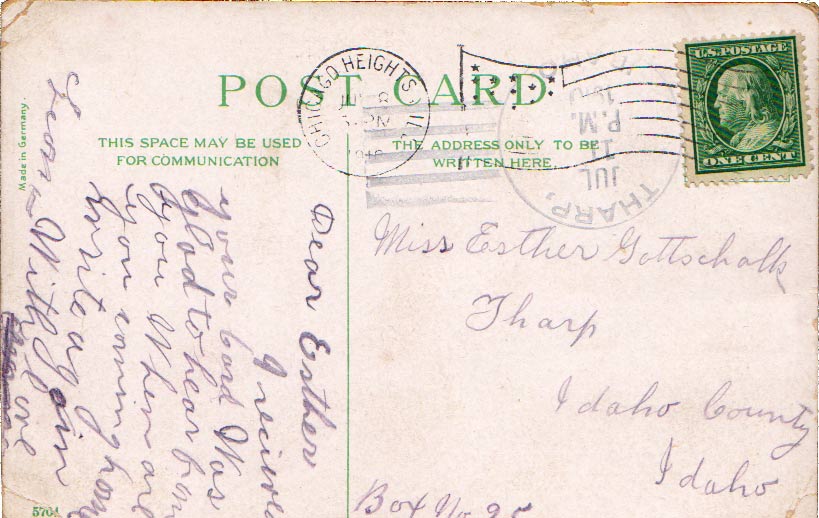 POST CARD
THIS SPACE MAY BE USED
FOR COMMUNICATION
THE ADDRESS ONLY TO BE
WRITTEN HERE
Made in Germany.
CHICAGO HEIGHTS, ILL.
THARP,
IDAHO
JUL
11
P.M.
U.S. POSTAGE
ONE CENT
Dear Esther
I recieved
your card Was
glad to hear from
you When are
you coming home
Write again
With love
Leona
Miss Esther Gottschalk
Tharp
Idaho County
Idaho
Box No. 95
5704